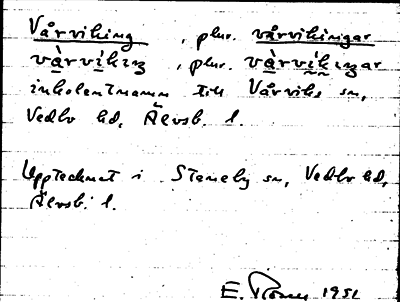 Vårviking , plur. vårvikingar
vàrvìkıŋ , plur. vàrvìkıŋar
inbolentnamn till Vårviks sn,
Vedbo hd, Älvsb. l.
Upptecknat i Steneby sn, Vedbo hd,
Älvsb. l.
E. 1951